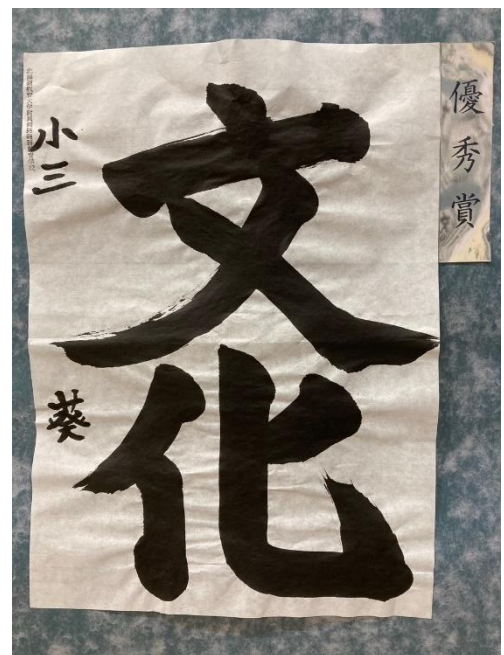 優秀賞
文化
小三
葵